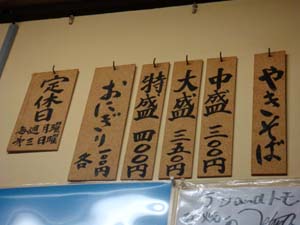 やきそば
中盛 三〇〇円
大盛 三五〇円
特盛 四〇〇円
おにぎり 各
定休日
毎週月曜
第三日曜